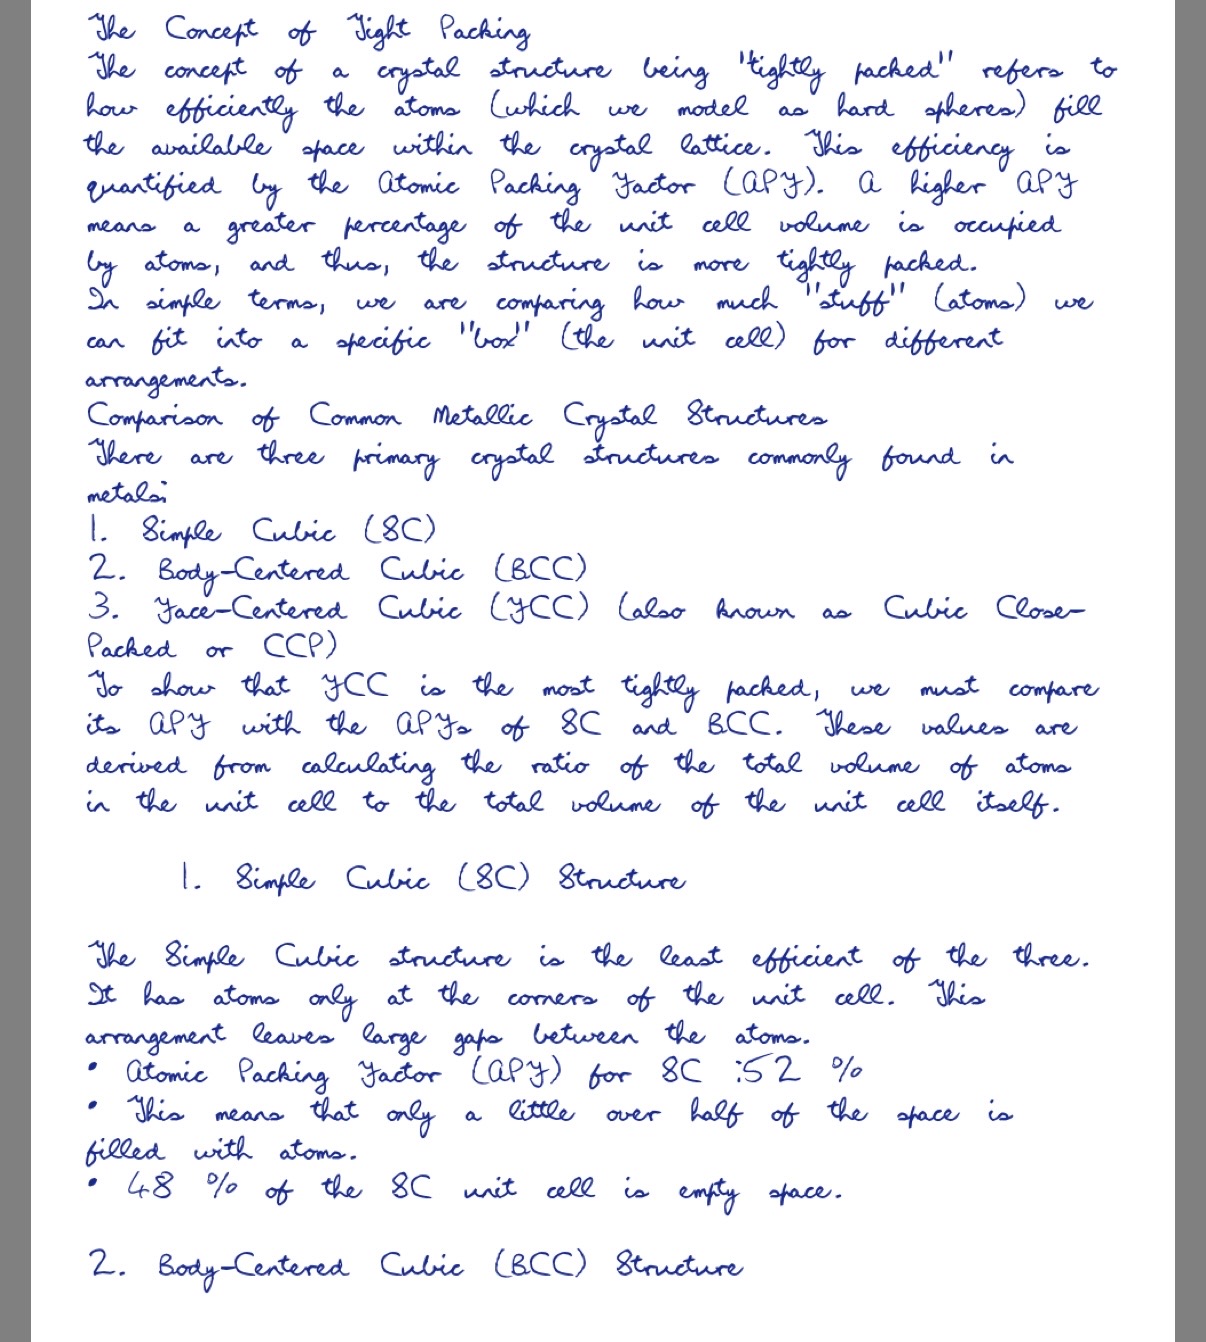 The Concept of Tight Packing
The concept of a crystal structure being "tightly packed" refers to
how efficiently the atoms (which we model as hard spheres) fill
the available space within the crystal lattice. This efficiency is
quantified by the Atomic Packing Factor (APF). A higher APF
means a greater percentage of the unit cell volume is occupied
by atoms, and thus, the structure is more tightly packed.
In simple terms, we are comparing how much "stuff" (atoms) we
can fit into a specific "box" (the unit cell) for different
arrangements.
Comparison of Common Metallic Crystal Structures
There are three primary crystal structures commonly found in
metals:
1. Simple Cubic (SC)
2. Body-Centered Cubic (BCC)
3. Face-Centered Cubic (FCC) (also known as Cubic Close-
Packed or CCP)
To show that FCC is the most tightly packed, we must compare
its APF with the APFs of SC and BCC. These values are
derived from calculating the ratio of the total volume of atoms
in the unit cell to the total volume of the unit cell itself.
1. Simple Cubic (SC) Structure
The Simple Cubic structure is the least efficient of the three.
It has atoms only at the corners of the unit cell. This
arrangement leaves large gaps between the atoms.
• Atomic Packing Factor (APF) for SC :52 %
• This means that only a little over half of the space is
filled with atoms.
• 48 % of the SC unit cell is empty space.
2. Body-Centered Cubic (BCC) Structure